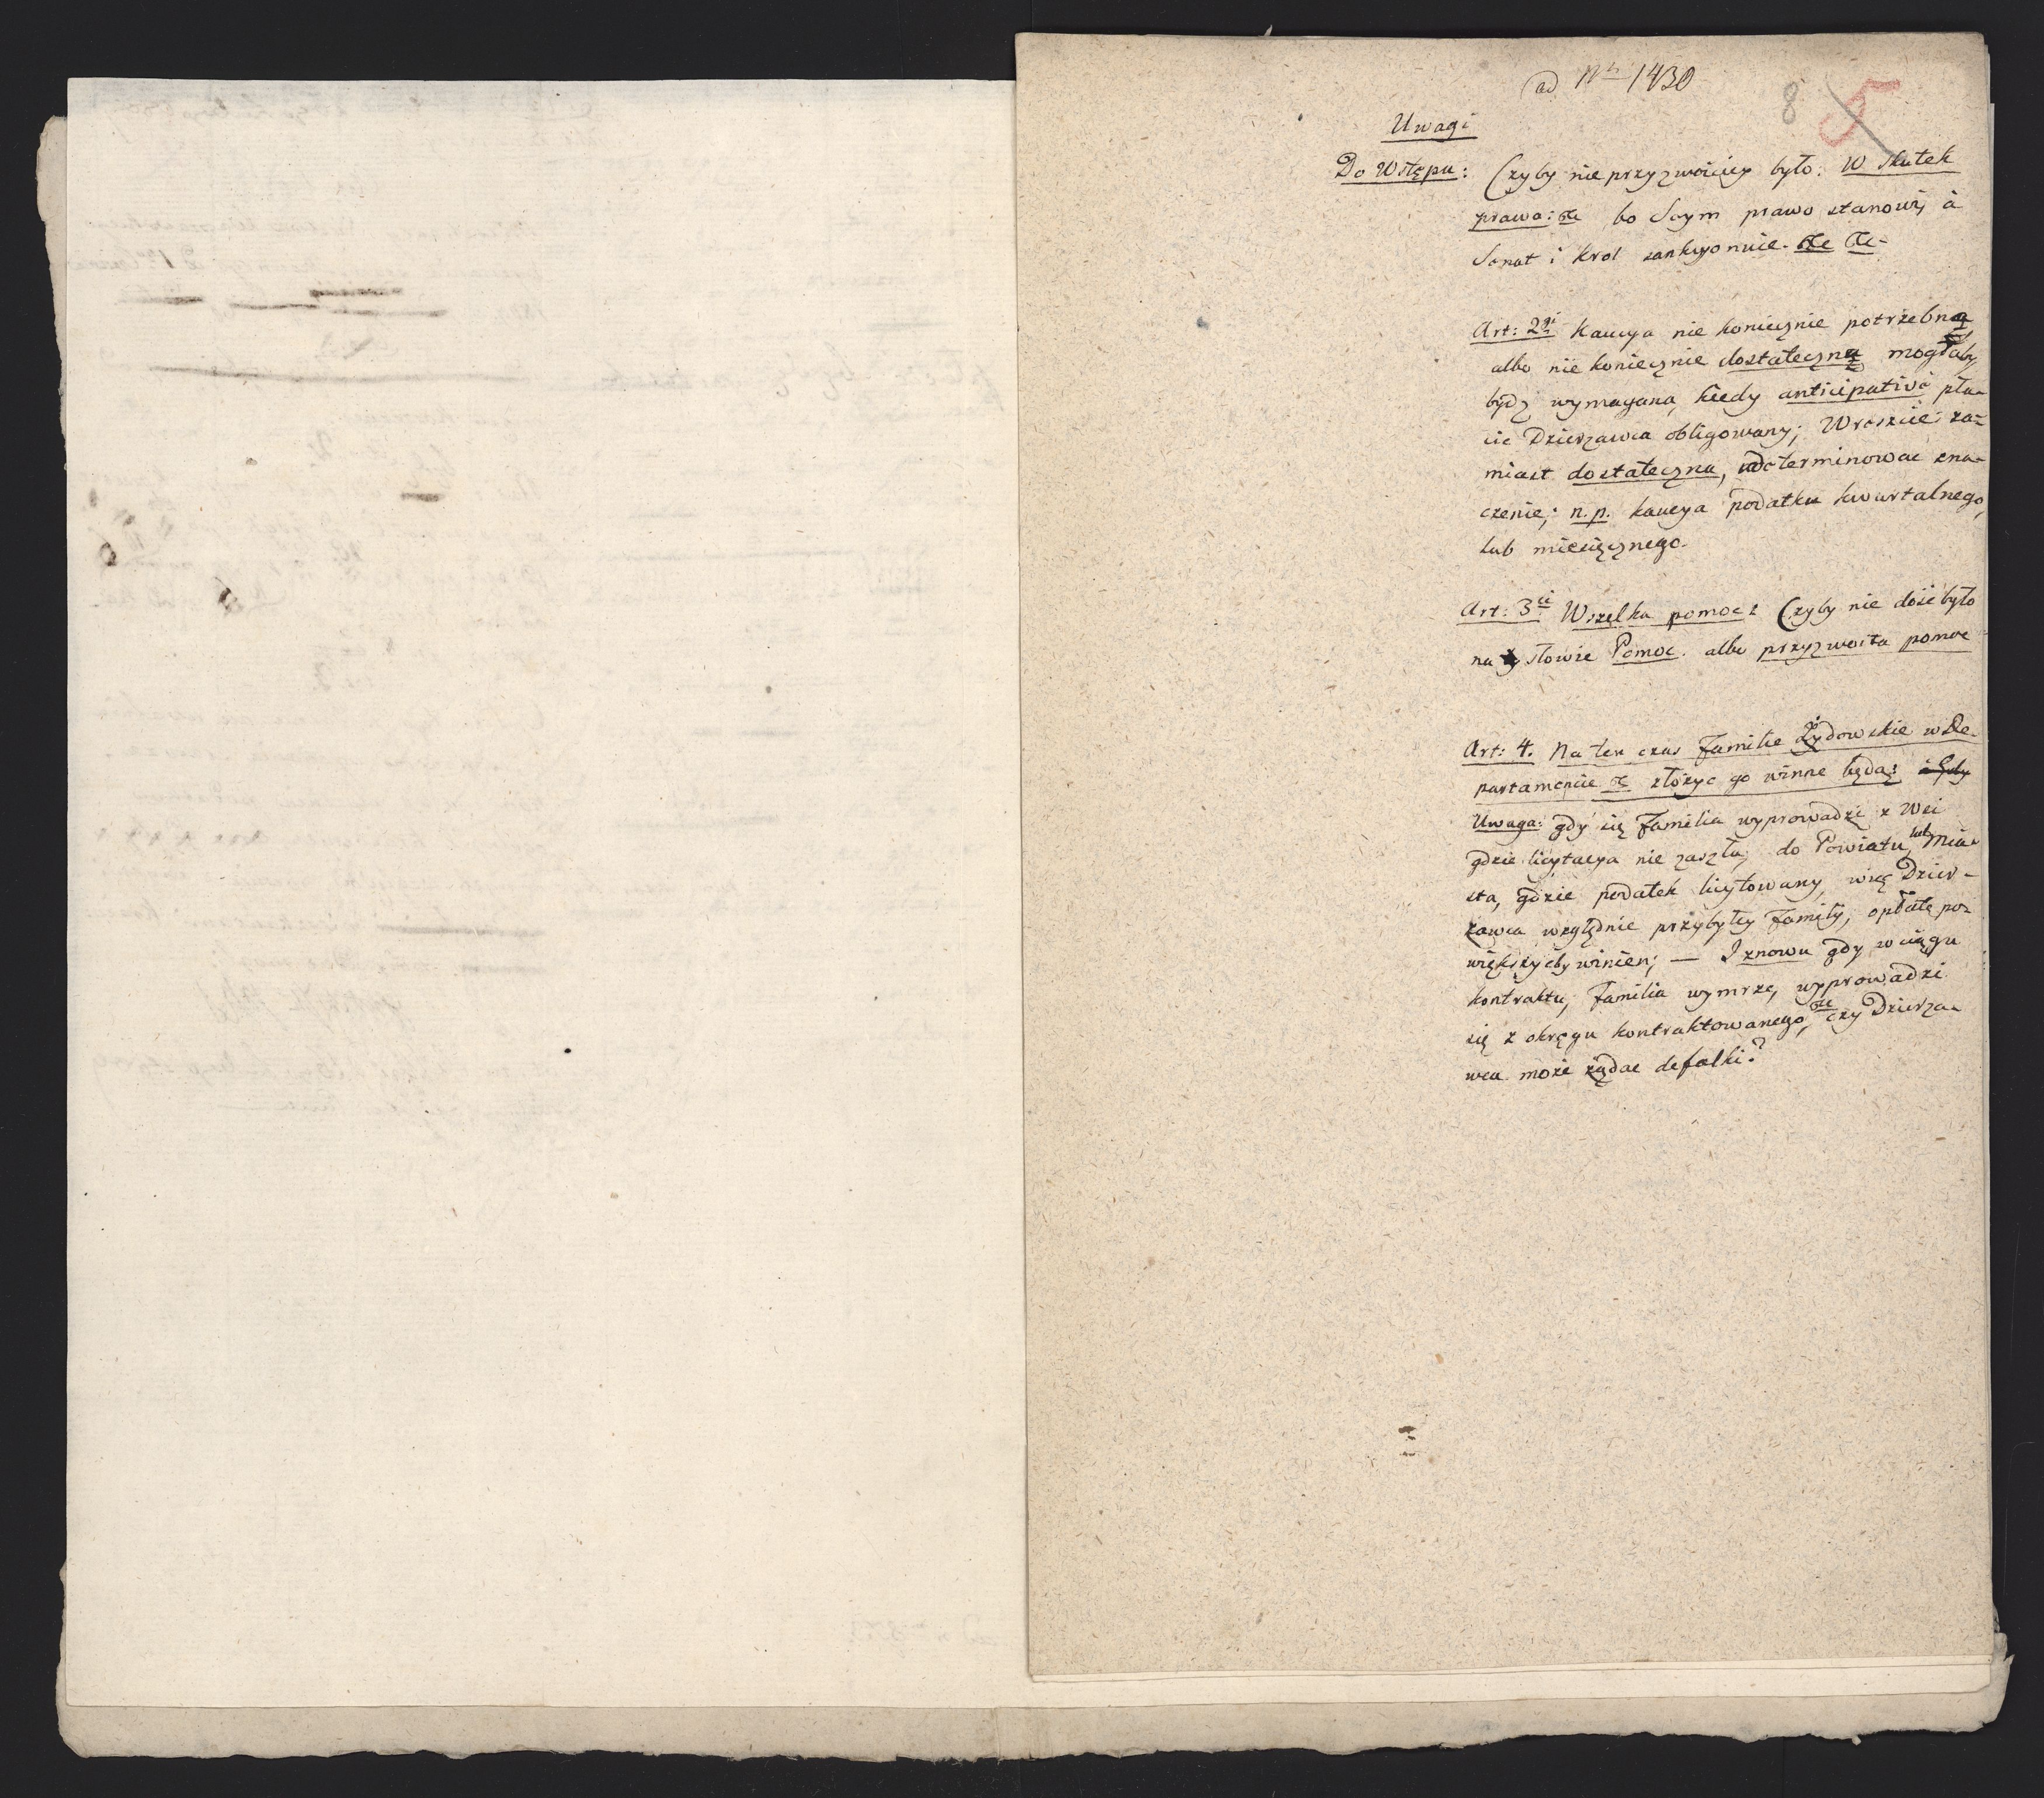 ad Nr 1430
8 5
Uwagi
Do Wstępu: Czyby nie przyzwoiciey było: W skutek
prawa: &c bo Seym prawo stanowi, á
Senat i Krol sankcyonuie. &c &c
Art: 2gi Kaucya nie koniecznie potrzebną
albo nie koniecznie dostateczną mogłaby
bydz wymagana, kiedy anticipativé pła-
cic Dzierzawca obligowany; Wreszcie: za-
miast dostateczna, determinowac zna-
czenie; n.p. kaucya podatku kwartalnego,
lub miesięcznego.
Art: 3ci Wszelka pomoc: Czyby nie dość było
na słowie Pomoc. albo przyzwoita pomoc
Art: 4. Na ten czas Familie Żydowskie w De-
partamencie &c złożyc go winne będą:
Uwaga: gdy się Familia wyprowadzi z Wsi
gdzie licytacya nie zaszła, do Powiatu, lub Mia-
sta, gdzie podatek licytowany, więc Dzier-
zawca względnie przybyłey Familij, opłatę po-
większyćby winien; — I znowu gdy w ciągu
kontraktu, Familia wymrze, wyprowadzi
się z okręgu kontraktowanego, &c czy Dzierza-
wca może rządac defalki?